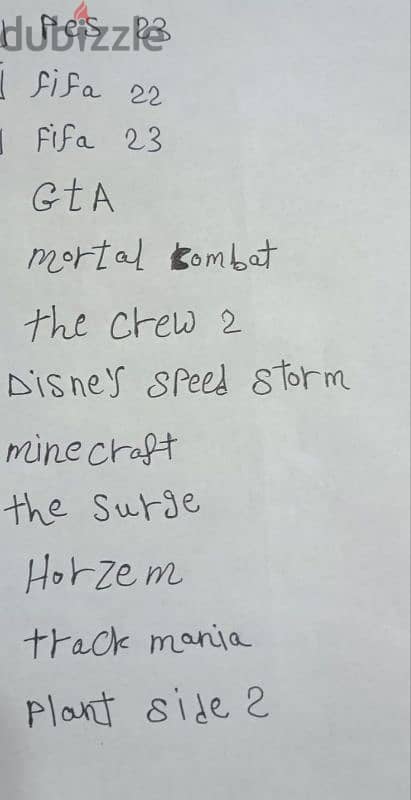 dubizzle
Pes 23
fifa 22
Fifa 23
GtA
mortal kombat
the crew 2
Disney speed storm
minecraft
the surge
Horzem
track mania
plant side 2